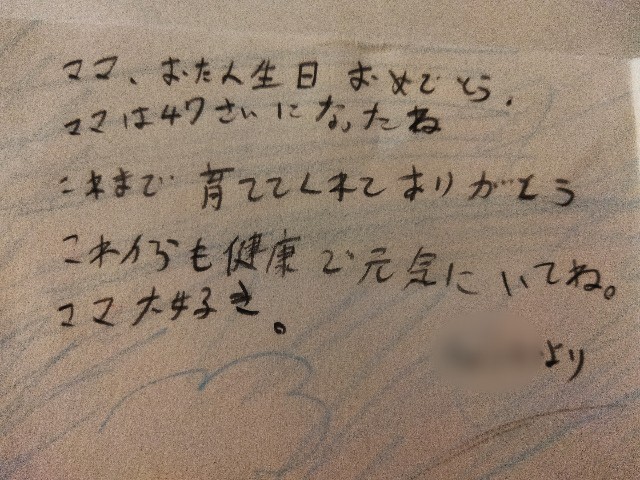 ママ、おたん生日 おめでとう。
ママは47さいになったね
これまで育ててくれてありがとう
これからも健康で元気にいてね。
ママ大好き。
より